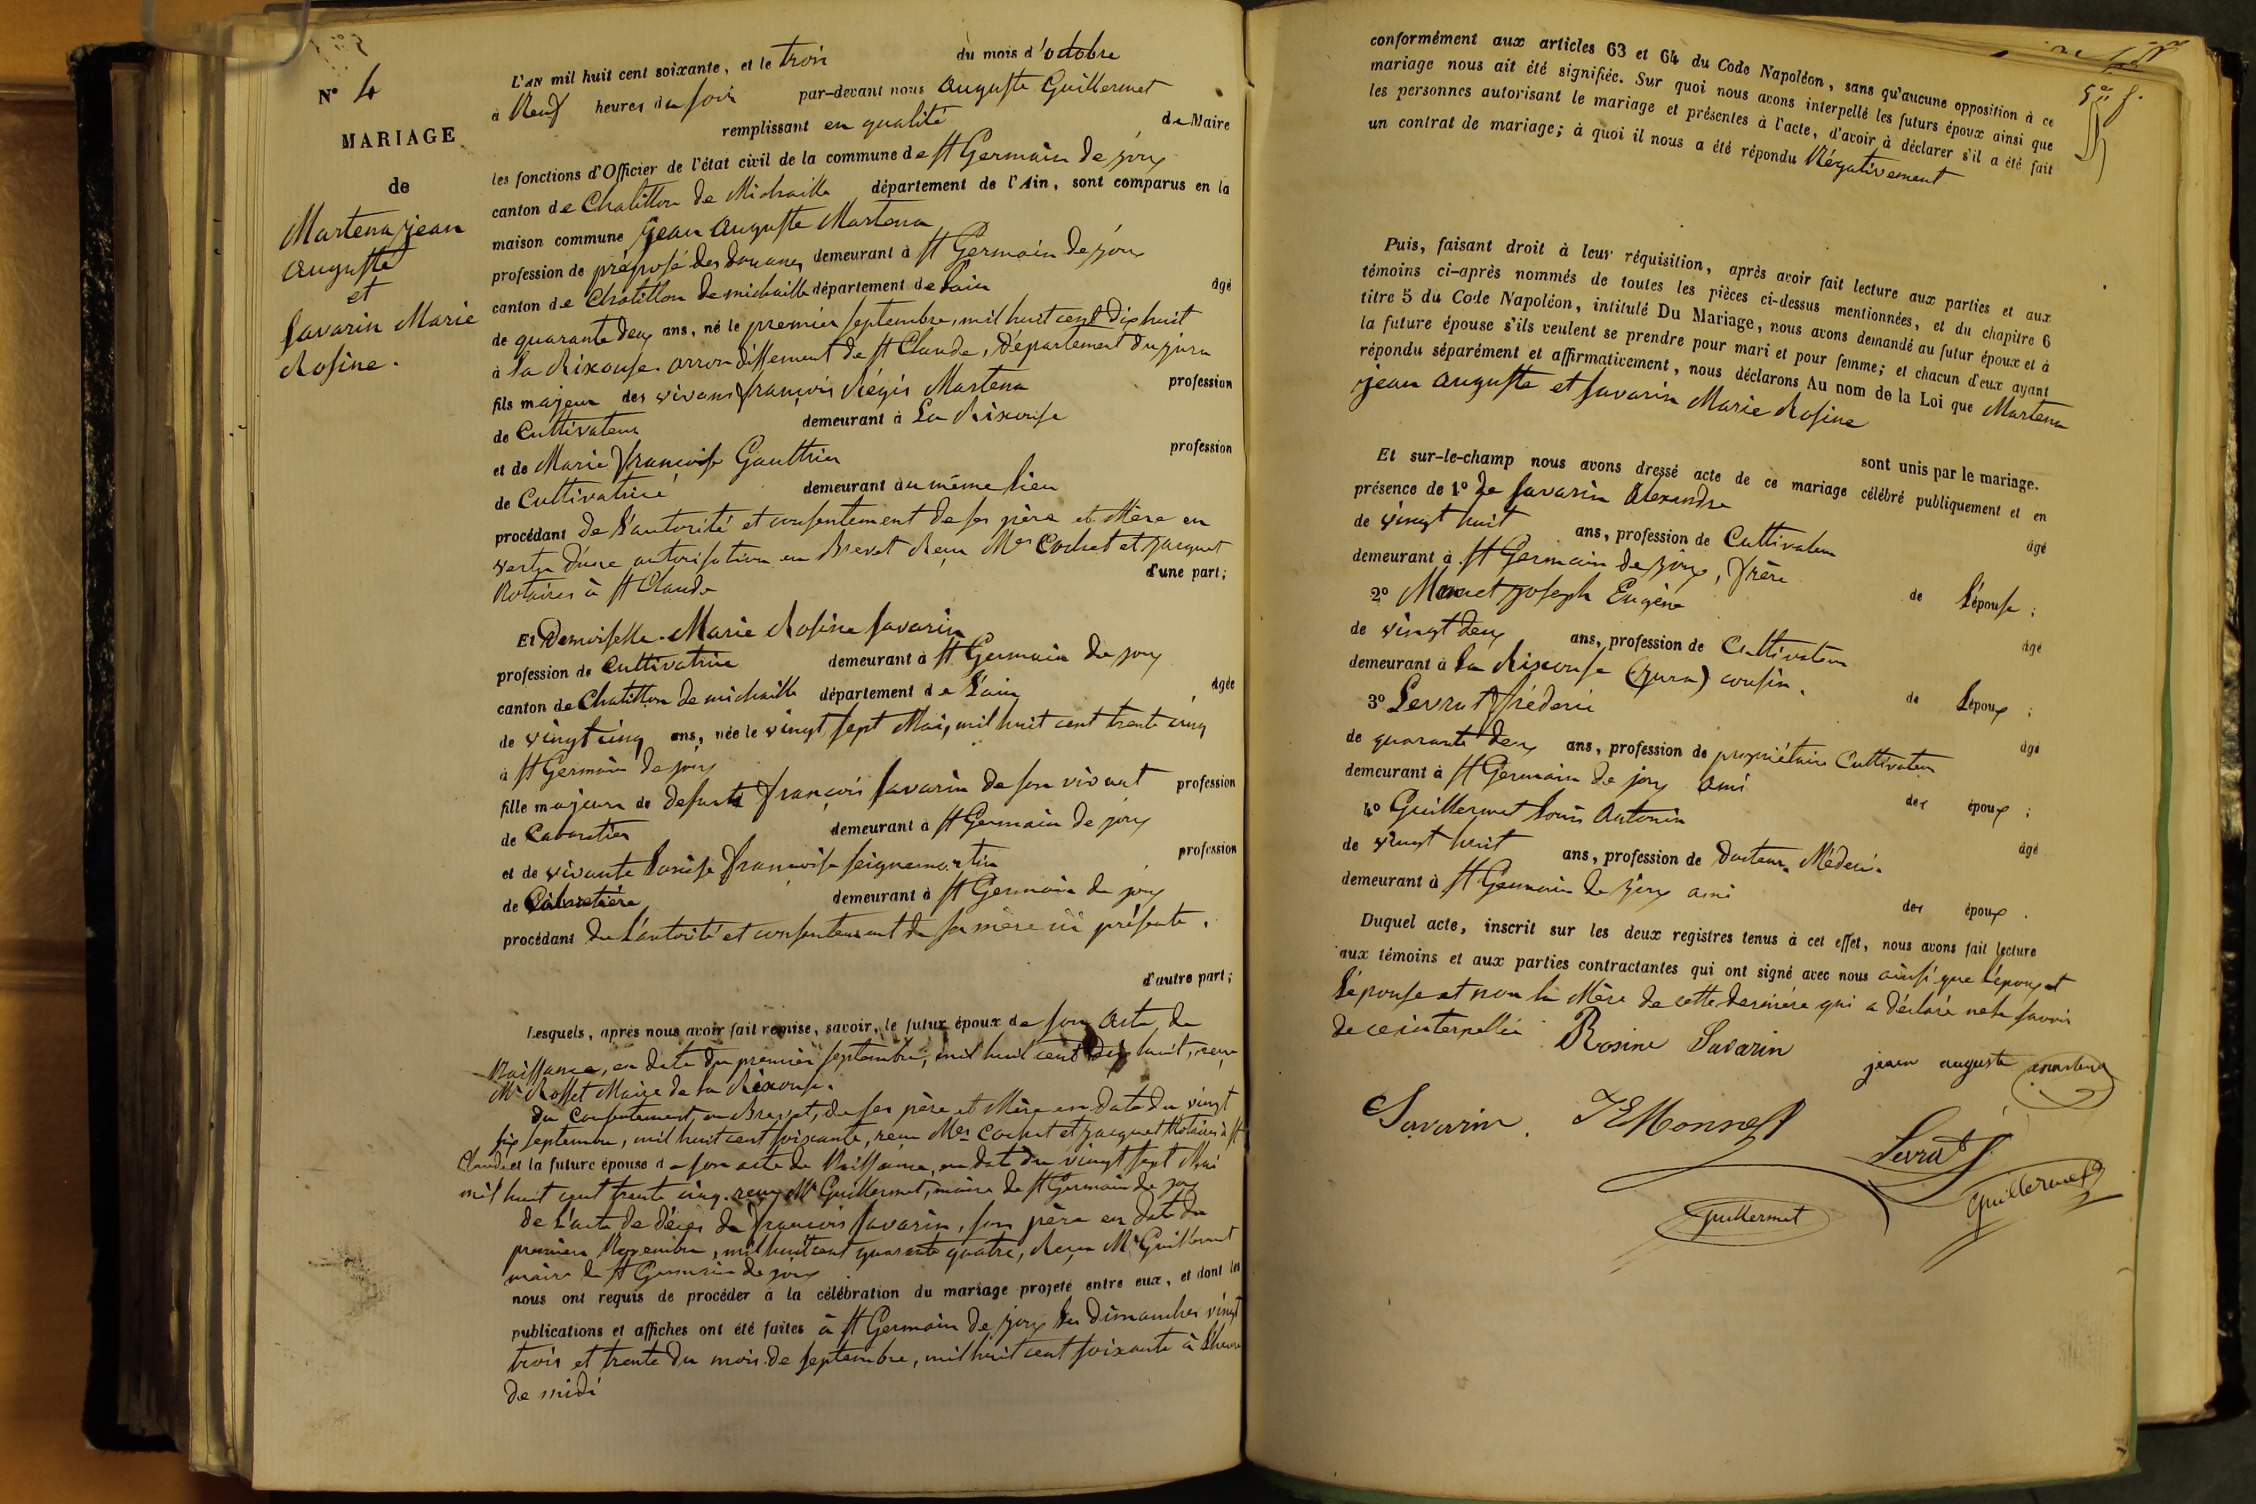 N° 4
MARIAGE
de
Martena jean
auguste
et
Savarin Marie
Rosine.
L'AN mil huit cent soixante, et le trois du mois d'octobre
à Neuf heures du soir par-devant nous Auguste Guillermet
remplissant en qualité de Maire
les fonctions d'Officier de l'état civil de la commune de St Germain de joux
canton de Chatillon de Michaille département de l'Ain, sont comparus en la
maison commune jean auguste Martena
profession de préposé des douanes demeurant à St Germain de joux
canton de Chatillon de michaille département de Lain âgé
de quarante deux ans, né le premier septembre, mil huit cent dix huit
à la Rixouse arrondissement de St Claude, département du jura
fils majeur des vivans françois Régis Martena profession
de Cultivateur demeurant à La Rixouse
et de Marie françoise Gauthier profession
de Cultivatrice demeurant au même lieu
procédant de l'autorité et consentement de ses père et Mère en
vertu d'une autorisation en Brevet Reçu Mes Cochet et jacquet
Notaires à St Claude d'une part;
Et Demoiselle Marie Rosine Savarin
profession de Cultivatrice demeurant à St Germain de joux
canton de Chatillon de michaille département de L'ain âgée
de vingt cinq ans, née le vingt sept Mai, mil huit cent trente cinq
à St Germain de joux
fille majeure de defunt françois Savarin de son vivant profession
de Cabaretier demeurant à St Germain de joux
et de vivante Louise françoise Seignemartin profession
de Cabaretière demeurant à St Germain de joux
procédant de L'autorité et consentement de sa mère ici présente.
d'autre part;
Lesquels, après nous avoir fait remise, savoir, le futur époux de son acte de
Naissance, en date du premier septembre, mil huit cent dix huit, reçu
Mr Rosset Maire de la Rixouse.
du Consentement en Brevet, de ses père et Mère en date du vingt
six septembre, mil huit cent soixante, reçu Mes Cochet et jacquet Notaires à St
Claude et la future épouse de son acte de Naissance, en date du vingt sept Mai
mil huit cent trente cinq reçu Mr Guillermet, maire de St Germain de joux
de L'acte de décès de françois Savarin, son père en date du
premier Novembre, mil huit cent quarante quatre, Reçu Mr Guillermet
maire de St Germain de joux
nous ont requis de procéder à la célébration du mariage projeté entre eux, et dont les
publications et affiches ont été faites à St Germain de joux les dimanches vingt
trois et trente du mois de septembre, mil huit cent soixante à L'heure
de midi
conformément aux articles 63 et 64 du Code Napoléon, sans qu'aucune opposition à ce
mariage nous ait été signifiée. Sur quoi nous avons interpellé les futurs époux ainsi que
les personnes autorisant le mariage et présentes à l'acte, d'avoir à déclarer s'il a été fait
un contrat de mariage; à quoi il nous a été répondu Négativement
Puis, faisant droit à leur réquisition, après avoir fait lecture aux parties et aux
témoins ci-après nommés de toutes les pièces ci-dessus mentionnées, et du chapitre 6
titre 5 du Code Napoléon, intitulé Du Mariage, nous avons demandé au futur époux et à
la future épouse s'ils veulent se prendre pour mari et pour femme; et chacun d'eux ayant
répondu séparément et affirmativement, nous déclarons Au nom de la Loi que Martena
jean auguste et Savarin Marie Rosine
sont unis par le mariage.
Et sur-le-champ nous avons dressé acte de ce mariage célébré publiquement et en
présence de 1° De Savarin Alexandre âgé
de vingt huit ans, profession de Cultivateur
demeurant à St Germain de joux, frère de L'épouse;
2° Monnet joseph Eugène âgé
de vingt deux ans, profession de Cultivateur
demeurant à La Rixouse (jura) cousin. de L'époux;
3° Levrat fréderic âgé
de quarante deux ans, profession de propriétaire Cultivateur
demeurant à St Germain de joux ami des époux;
4° Guillermet Louis Antonin âgé
de vingt huit ans, profession de docteur Médecin
demeurant à St Germain de joux ami des époux.
Duquel acte, inscrit sur les deux registres tenus à cet effet, nous avons fait lecture
aux témoins et aux parties contractantes qui ont signé avec nous ainsi que L'époux et
L'épouse et non la Mère de cette dernière qui a déclaré ne le savoir
de ce interpellée
Rosine Savarin
jean auguste martena
Savarin. JE Monnet
Levrat f
Guillermet
Guillermet